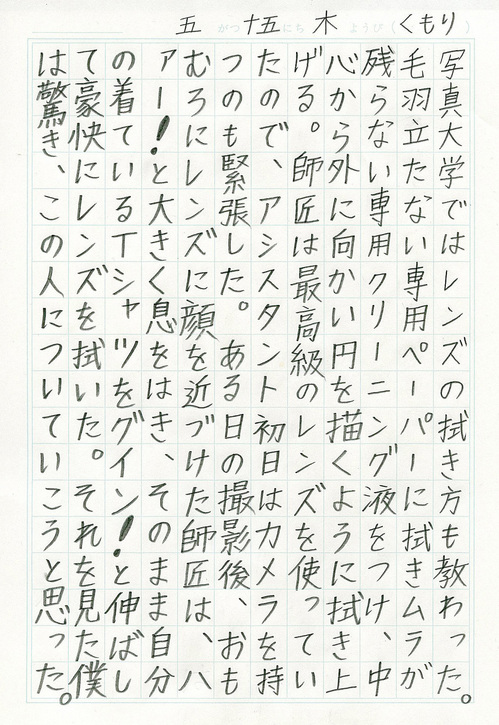 五がつ十五にち木ようび(くもり)
写真大学ではレンズの拭き方も教わった。
毛羽立たない専用ペーパーに拭きムラが
残らない専用クリーニング液をつけ、中
心から外に向かい円を描くように拭き上
げる。師匠は最高級のレンズを使ってい
たので、アシスタント初日はカメラを持
つのも緊張した。ある日の撮影後、おも
むろにレンズに顔を近づけた師匠は、ハ
ァー!と大きく息をはき、そのまま自分
の着ているTシャツをグイン!と伸ばし
て豪快にレンズを拭いた。それを見た僕
は驚き、この人についていこうと思った。